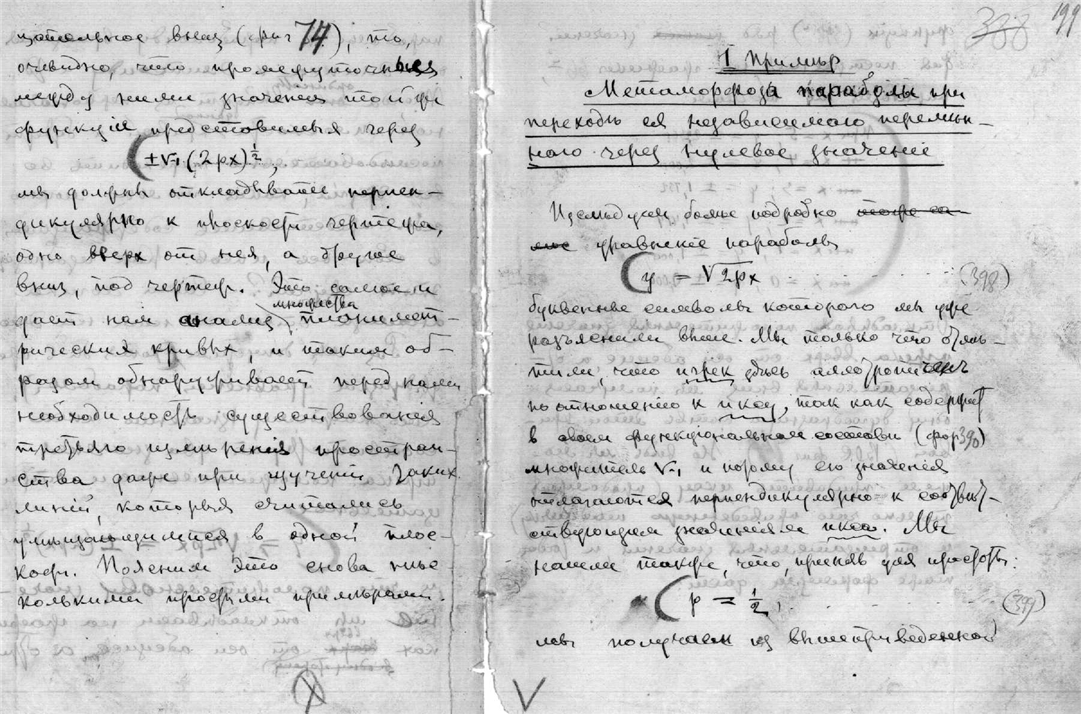 цательное вниз (фиг 74), то
очевидно, что промежуточныя
между ними значения той же
функции представимыя через
±√-1 (2px)^½,
мы должны откладывать перпен-
дикулярно к плоскости чертежа,
одно вверх от нея, а другое
вниз, под чертеж. Это самое и
множества
дает нам анализ плоскимет-
рических кривых, и таким об-
разом обнаруживает перед нами
необходимость существования
третьяго измерения простран-
ства даже при изучении таких
линий, которыя считались
умещающимися в одной плос-
кости. Поясним это снова нес-
колькими простыми примерами.
388 199
I Пример
Метаморфоза параболы при
переходе ея независимаго перемен-
наго через нулевое значение
Изследуем более подробно
уравнение параболы
y = √2px (398)
буквенные символы котораго мы уже
разъяснили выше. Мы только что отме-
тили что игрек здесь аллотропичен
по отношению к иксу, так как содержит
в своем функциональном составе (фор 390)
множитель √-1 и потому его значения
отлагаются перпендикулярно к соответ-
ствующим значениям икса. Мы
нашли также, что, приняв для простоты:
p = ½, (399)
мы получаем из вышеприведенной